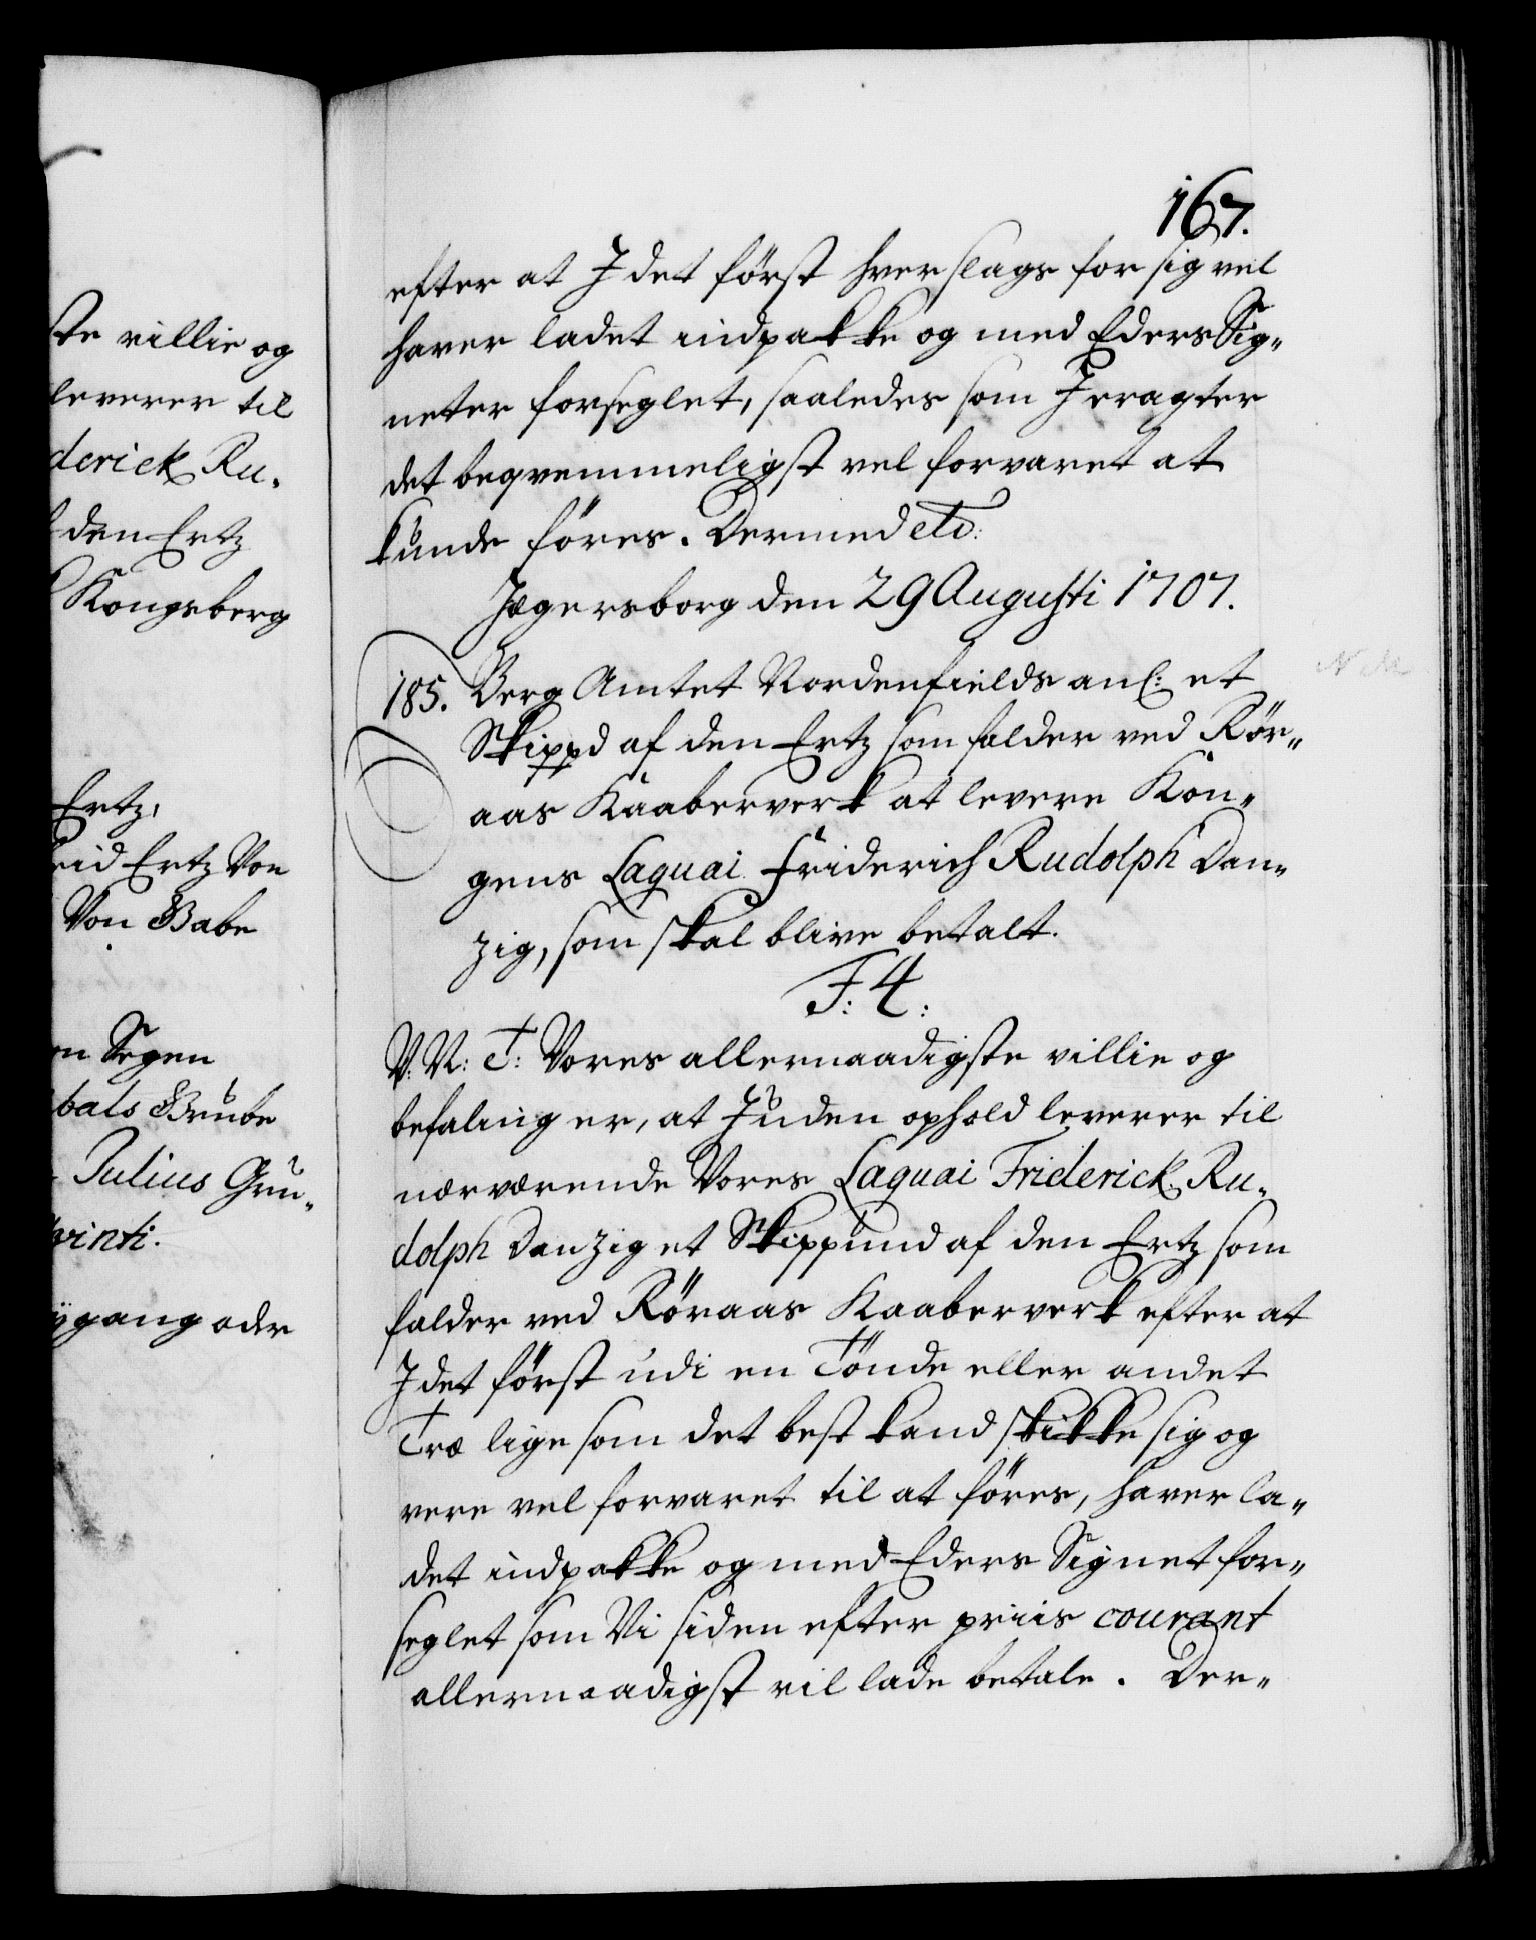 ste villie og
leverer til
derick Ru-
den Ertz
Kongsberg
Ertz,
eid Ertz Von
Von Babe
on Segen
bals Grube
Julius Gru-
vinti.
ÿgang oder
167.
efter at I det först hver slags for sig vel
haver ladet indpakke og med Eders Sig-
neter forseglet, saaledes som I eragter
det beqvemmeligst vel forvaret at
kunde föres. Dermed etc:
Jægersborg den 29 Augusti 1707.
185. Berg Amtet Nordenfields anl: et
Skippd af den Ertz som falder ved Rör-
aas Kaaberverk at levere Kon-
gens Laquai Friderich Rudolph Dan-
zig, som skal blive betalt.
F: 4:
V: N: T: Vores allernaadigste villie og
befaling er, at I uden ophold leverer til
nærværende Vores Laquai Friderick Ru-
dolph Danzig et Skippund af den Ertz som
falder ved Röraas Kaaberverk efter at
I det först udi en Tönde eller andet
Træ lige som det best kand skikke sig og
vere vel forvaret til at föres, haver la-
det indpakke og med Eders Signet for-
seglet som Vi siden efter priis courant
allernaadigst vil lade betale. Der-